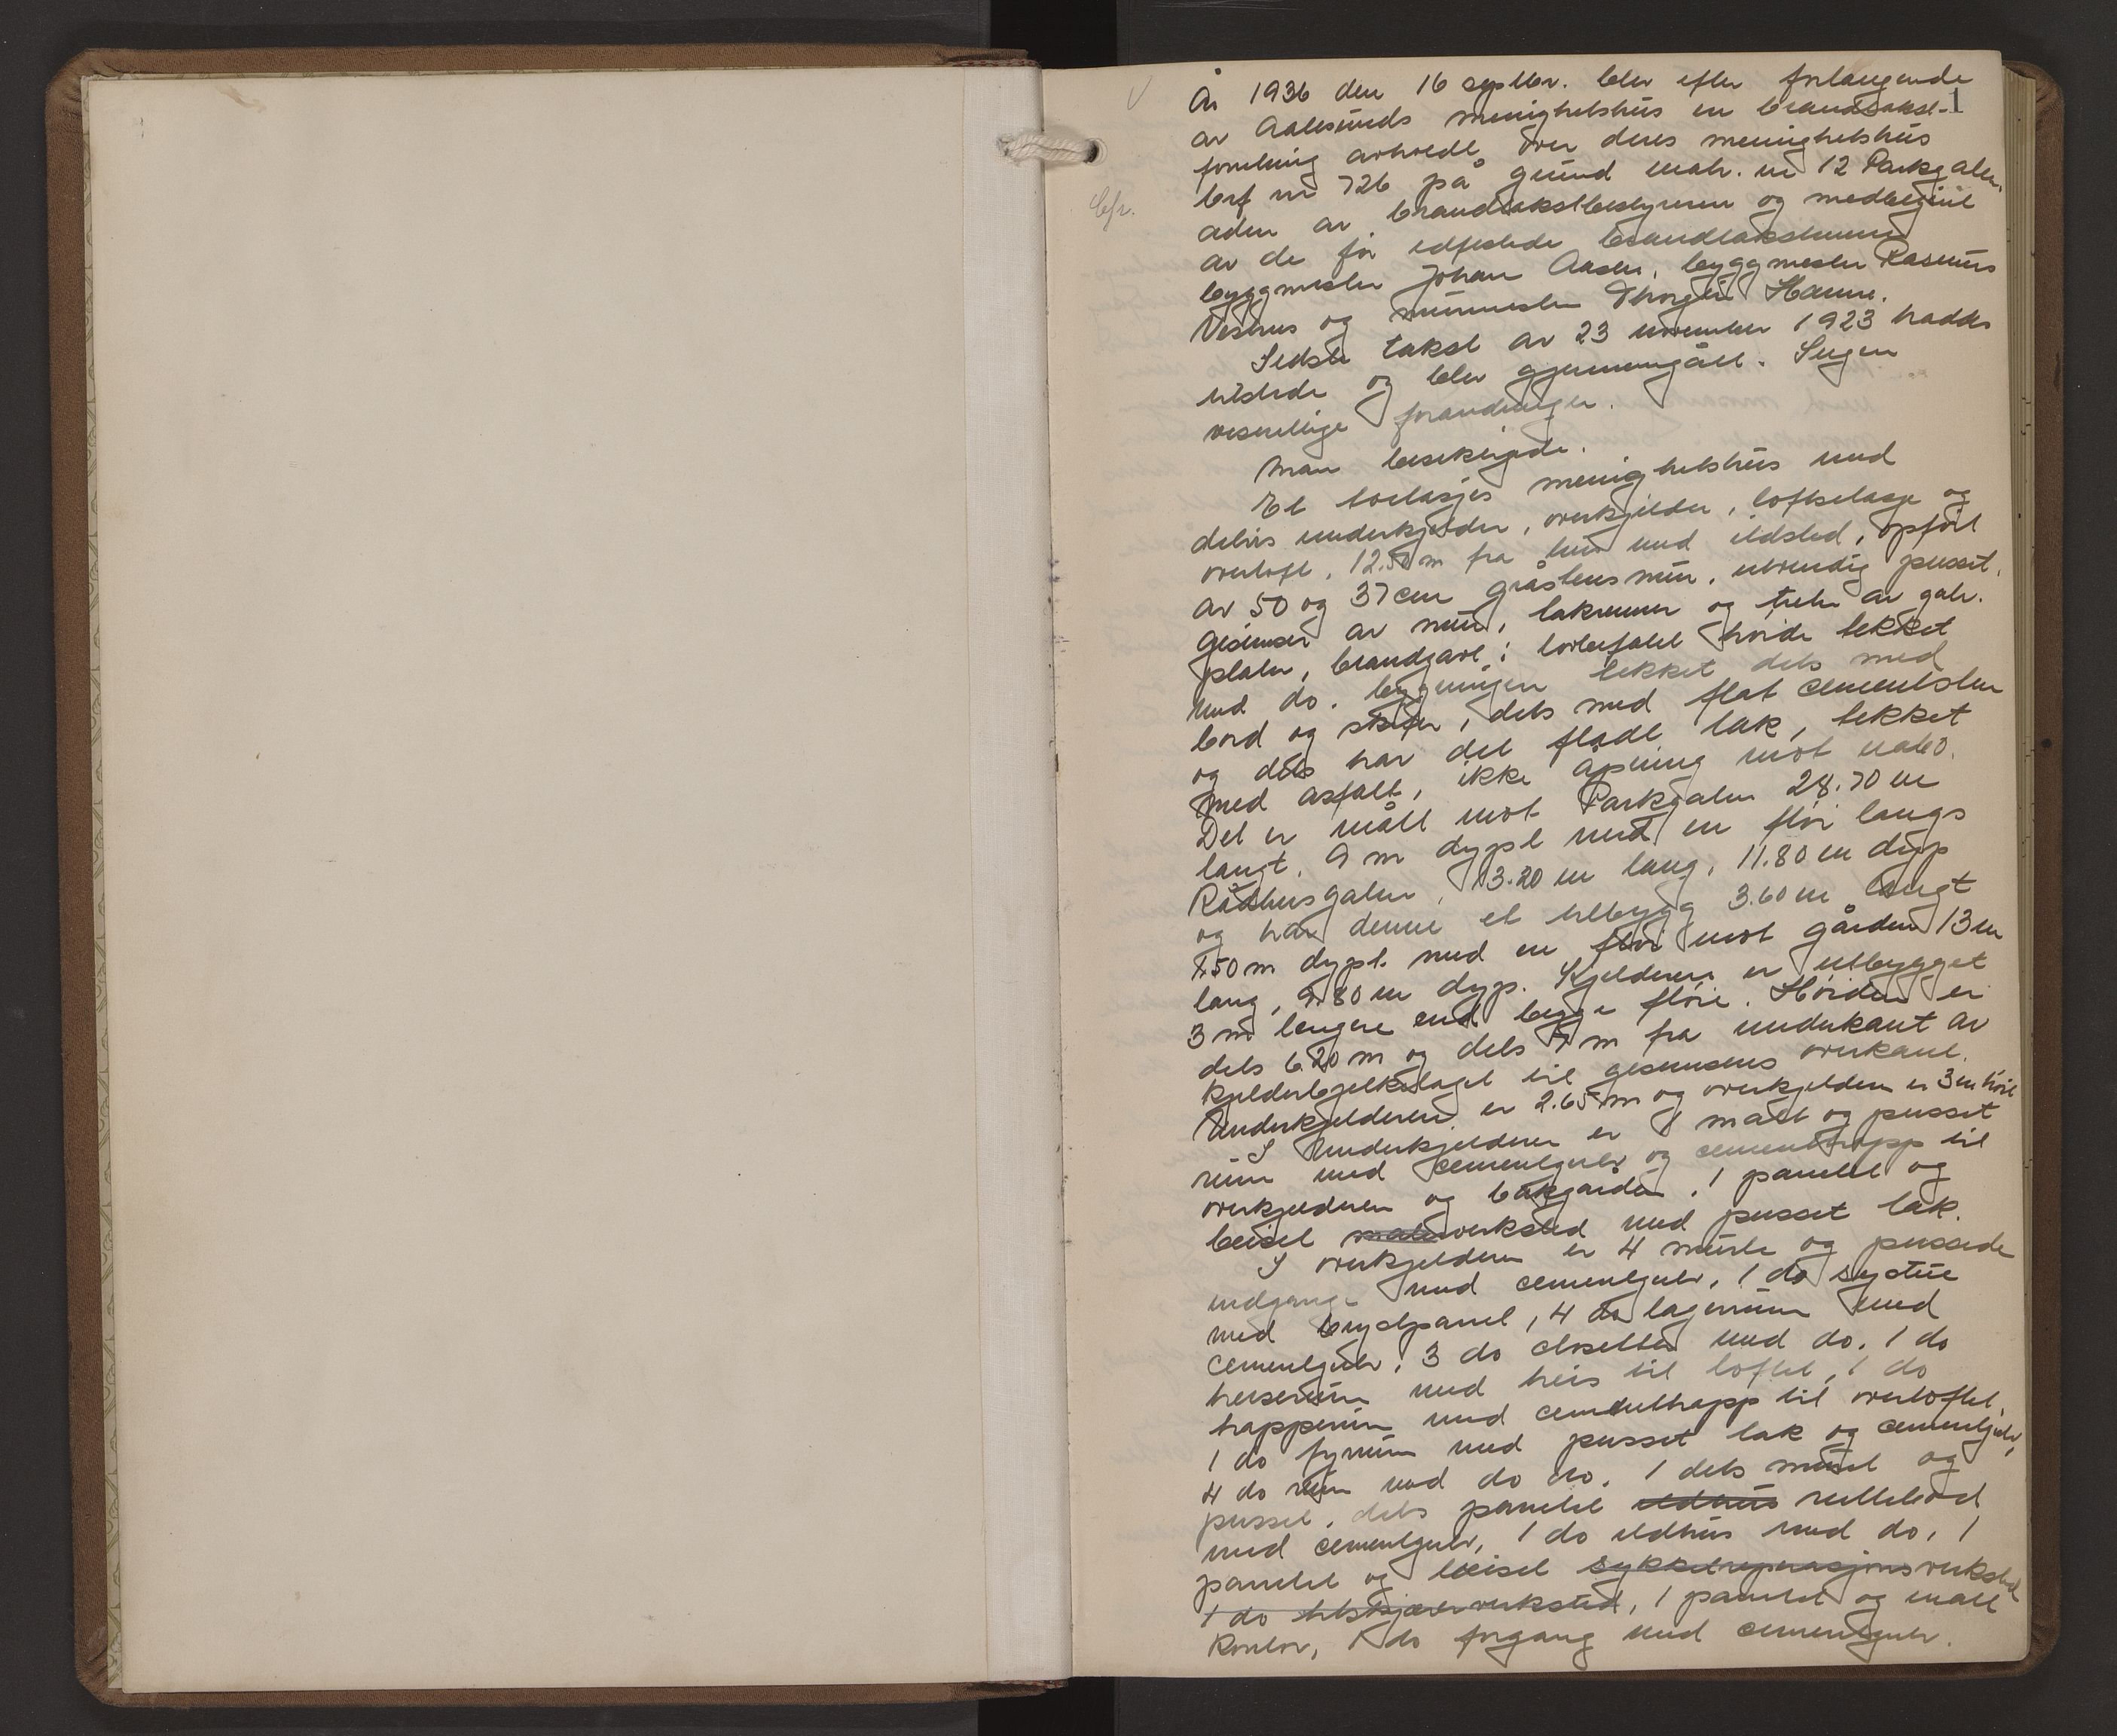 1
År 1936 den 16 septbr. blev efter forlangende
av Aalesunds menighetshus en brandtakst-
forretning avholdt over deres menighetshus
brf nr 726 på grund matr. nr 12 Parkgaten.
av brandtakstbestyreren og
av de før edfestede brandtakstmenn
byggmester Johan Aasen, byggmester Rasmus
Veshus og murmester Thorgeir Hamre.
Sidste takst av 23 november 1923 hadde
tilstede og blev gjennemgått. Ingen
vesentlige forandringer.
Man besiktigede.
Et toetasjes menighetshus med
delvis underkjelder, overkjelder, loftsetasje og
overloft, 12.50 m fra hus med ildsted, opført
av 50 og 37 cm gråstensmur, utvendig pusset,
gesimser av mur, takrenner og av galv.
plater, brandgavl i lovbefalt høide tekket
med do. bygningen tekket dels med
bord og skifer, dels med flat cementsten
og dels har det fladt tak, tekket
med asfalt, ikke åpning mot nabo.
Det er målt mot Parkgaten 28.70 m
langt, 9 m dypt med en fløi langs
Rådhusgaten, 13.20 m lang, 11.80 m dyp
og har denne et tilbygg 3.60 m langt
8.50 m dypt med en fløi mot gården 13 m
lang, 9.80 m dyp. Kjelderen er utbygget
3 m lengere end begge fløie. Høiden er
dels 6.20 m og dels 7 m fra underkant av
kjelderbjelkelaget til gesimsens overkant.
Underkjelderen er 2.65 m og overkjelderen er 3 m høit
I Underkjelderen er 1 malt og pusset
rum med cementgulv og cementtrapp til
overkjelderen og bakgården, 1 panelt og
beiset malerverksted med pusset tak.
I overkjelderen er 4 murte og pussede
indgange med cementgulv, 1 do systue
med brystpanel, 4 do lagerrum med
cementgulv, 3 do closetter med do, 1 do
heiserum med heis til loftet, 1 do
trapperum med cementtrapp til overloftet,
1 do fyrrum med pusset tak og cementgulv,
4 do rum med do do, 1 dels murt og
pusset, dels panelt ildhus rullebod
med cementgulv, 1 do ildhus med do, 1
panelt og beiset sykkelreparasjonsverksted
1 do tilskjærerverksted, 1 panelt og malt
kontor, 1 do forgang med cementgulv.